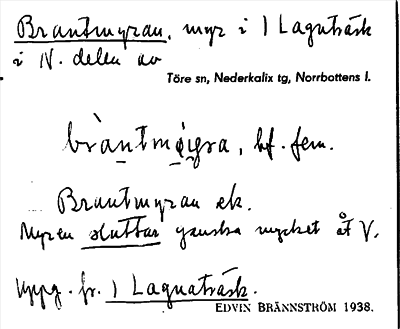 Brantmyran, myr i 1 Lagnträsk
i N. delen av
Töre sn, Nederkalix tg, Norrbottens l.
bràntmøyra, bf. fem.
Brantmyran ek.
Myren sluttar ganska mycket åt V.
Uppg. fr. 1 Lagnaträsk.
EDVIN BRÄNNSTRÖM 1938.